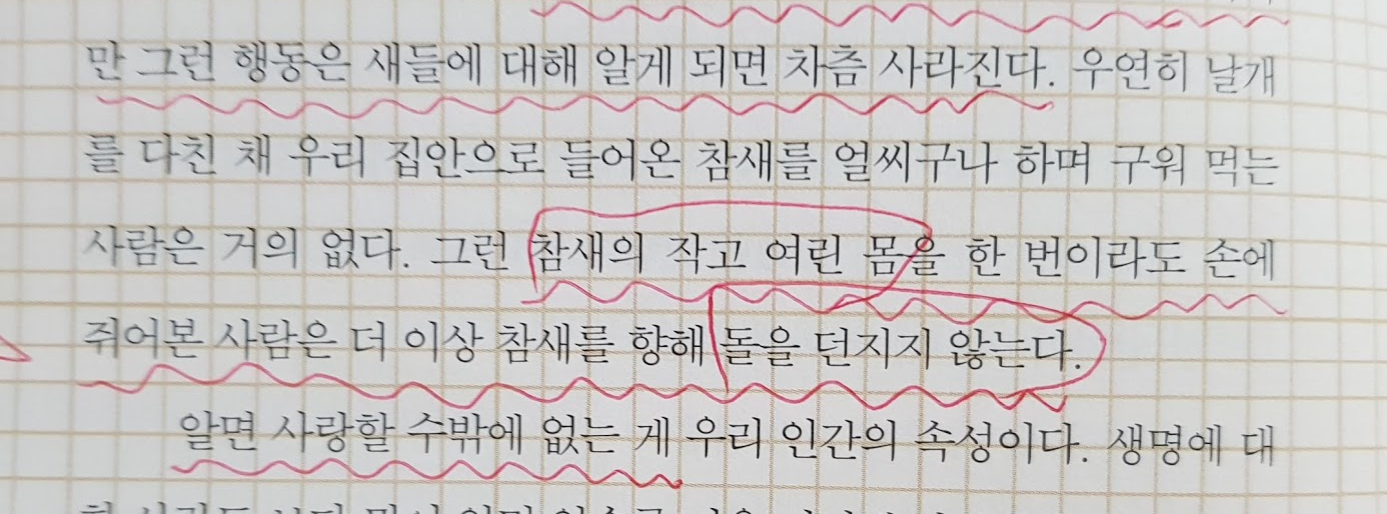 만 그런 행동은 새들에 대해 알게 되면 차츰 사라진다. 우연히 날개
를 다친 채 우리 집안으로 들어온 참새를 얼씨구나 하며 구워 먹는
사람은 거의 없다. 그런 참새의 작고 여린 몸을 한 번이라도 손에
쥐어본 사람은 더 이상 참새를 향해 돌을 던지지 않는다.
알면 사랑할 수밖에 없는 게 우리 인간의 속성이다. 생명에 대